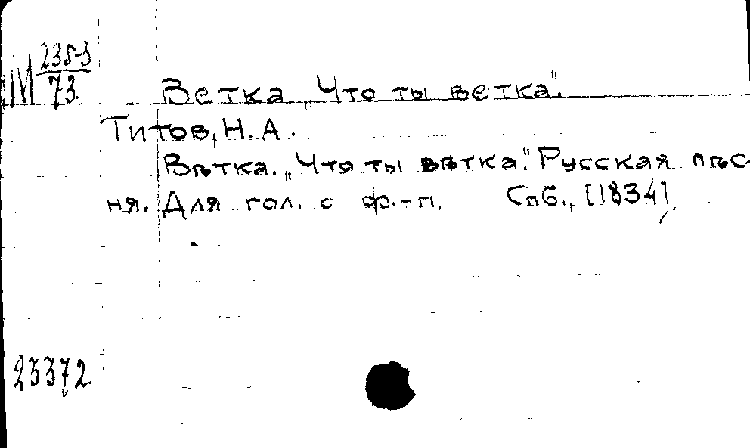 М 238-3
73
Ветка „Что ты ветка".
Титов, Н. А.
Вѣтка. „Что ты вѣтка." Русская пѣс-
ня. Для гол. с ф.-п. Спб., [1834]
23372